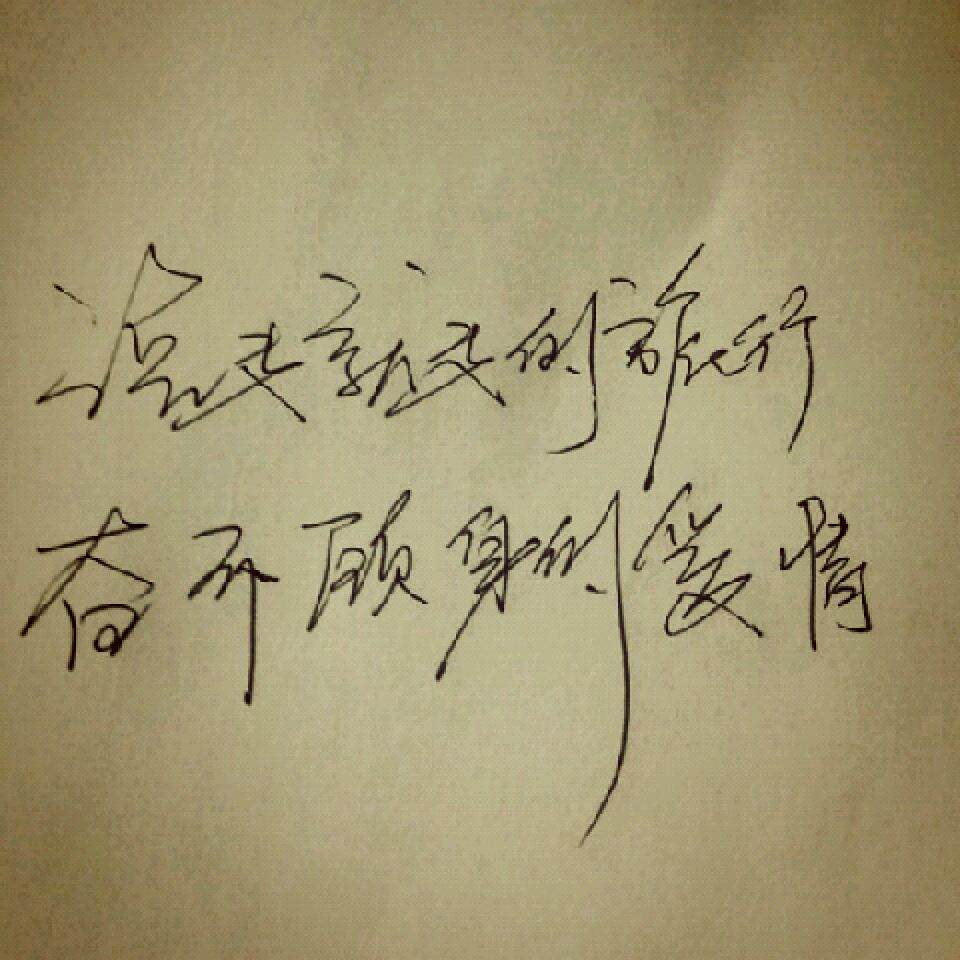 说走就走的旅行
奋不顾身的爱情